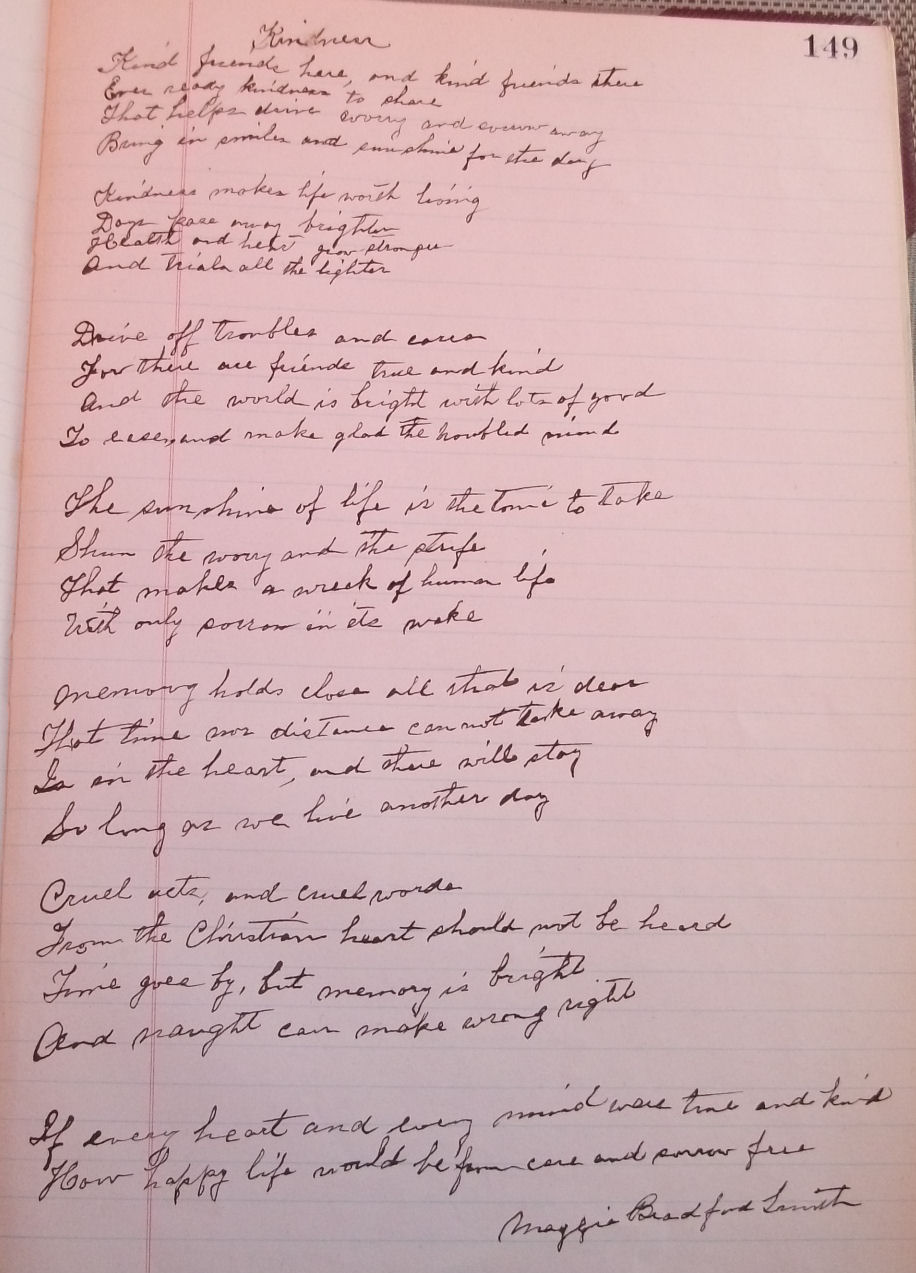 149
Kindness
Kind friends here, and kind friends there
Ever ready kindness to share
That helps drive worry and sorrow away
Bring in smiles and sunshine for the day
Kindness makes life worth living
Days pass away brighter
Health and heart grow stronger
And trials all the lighter
Drive off troubles and cares
For there are friends true and kind
And the world is bright with lots of good
To ease, and make glad the troubled mind
The sunshine of life is the tonic to take
Shun the worry and the strife
That makes a wreck of human life
With only sorrow in its wake
Memory holds close all that is dear
That time nor distance can not take away
Is in the heart, and there will stay
So long as we live another day
Cruel acts, and cruel words
From the Christian heart should not be heard
Time goes by, but memory is bright
And naught can make wrong right
If every heart and every mind were true and kind
How happy life would be from care and sorrow free
Maggie Bradford Smith